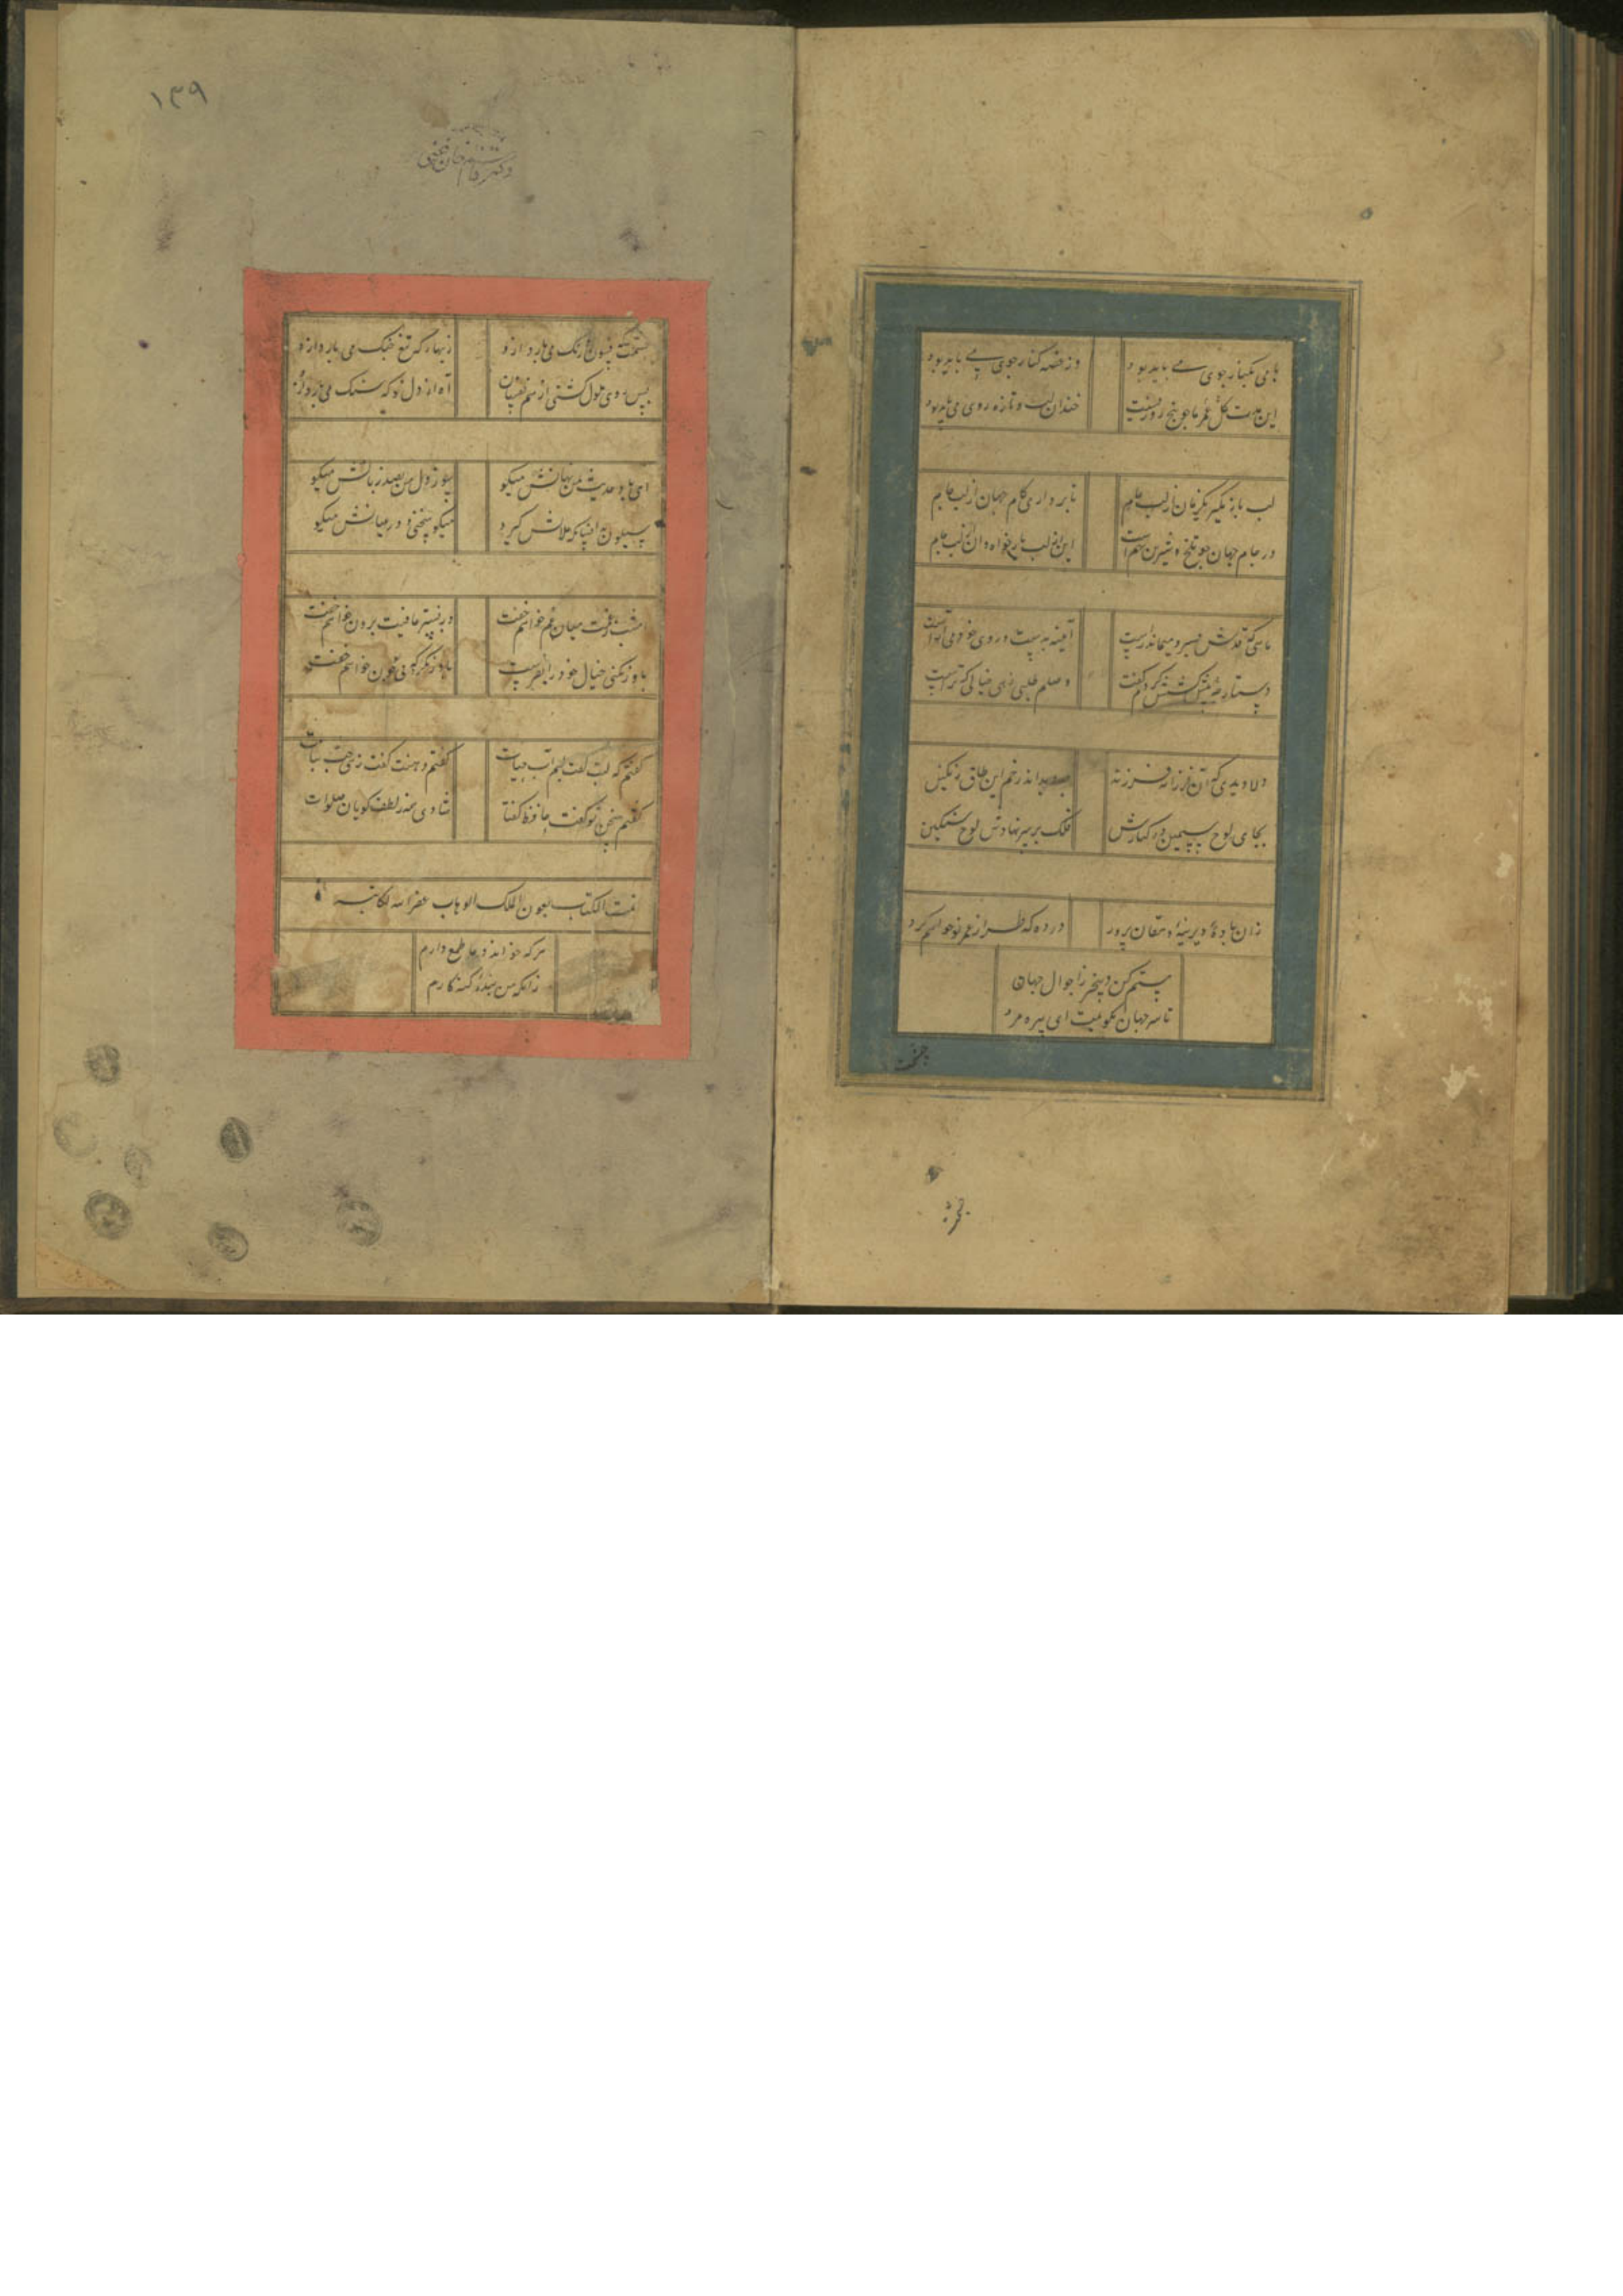 با می بکنار جوی می باید بود
وز غصه کنار جوی می باید بود
این مدت عمر ما چو گل ده روزست
خندان لب و تازه روی می باید بود
لب باز مگیر یکزمان از لب جام
تا برداری کام جهان از لب جام
در جام جهان چو تلخ و شیرین بهم است
این از لب یار خواه و آن از لب جام
ماهی که قدش بسرو میماند راست
آیینه بدست و روی خود می آراست
دستارچه پیشکشش کردم گفت
وصلم طلبی زهی خیالی که تراست
دلا دیدی که آن فرزانه فرزند
چه دید اندر خم این طاق رنگین
بجای لوح سیمین در کنارش
فلک بر سر نهادش لوح سنگین
زان بادهٔ دیرینهٔ دهقان پرور
در ده که طراز عمر نو خواهم کرد
مستم کن و بیخبر ز احوال جهان
تا سر جهان بگویمت ای سره مرد
۱۳۹
چشمت که فسون و رنگ می بارد ازو
زنهار که تیغ جنگ می بارد ازو
بس زود ملول گشتی از همنفسان
آه از دل تو که سنگ می بارد ازو
ای باد حدیث من نهانش میگو
سوز دل من بصد زبانش میگو
میگو سخنی و در میانش میگو
امشب ز غمت میان خون خواهم خفت
وز بستر عافیت برون خواهم خفت
باور نکنی خیال خود را بفرست
تا در نگرد که بی تو چون خواهم خفت
گفتم که لبت گفت لبم آب حیات
گفتم دهنت گفت زهی حب نبات
گفتم سخن تو گفت حافظ گفتا
شادی همه لطف گویان صلوات
تمت الکتاب بعون الملک الوهاب غفر الله لکاتبه
هر که خواند دعا طمع دارم
زانکه من بندهٔ گنه کارم